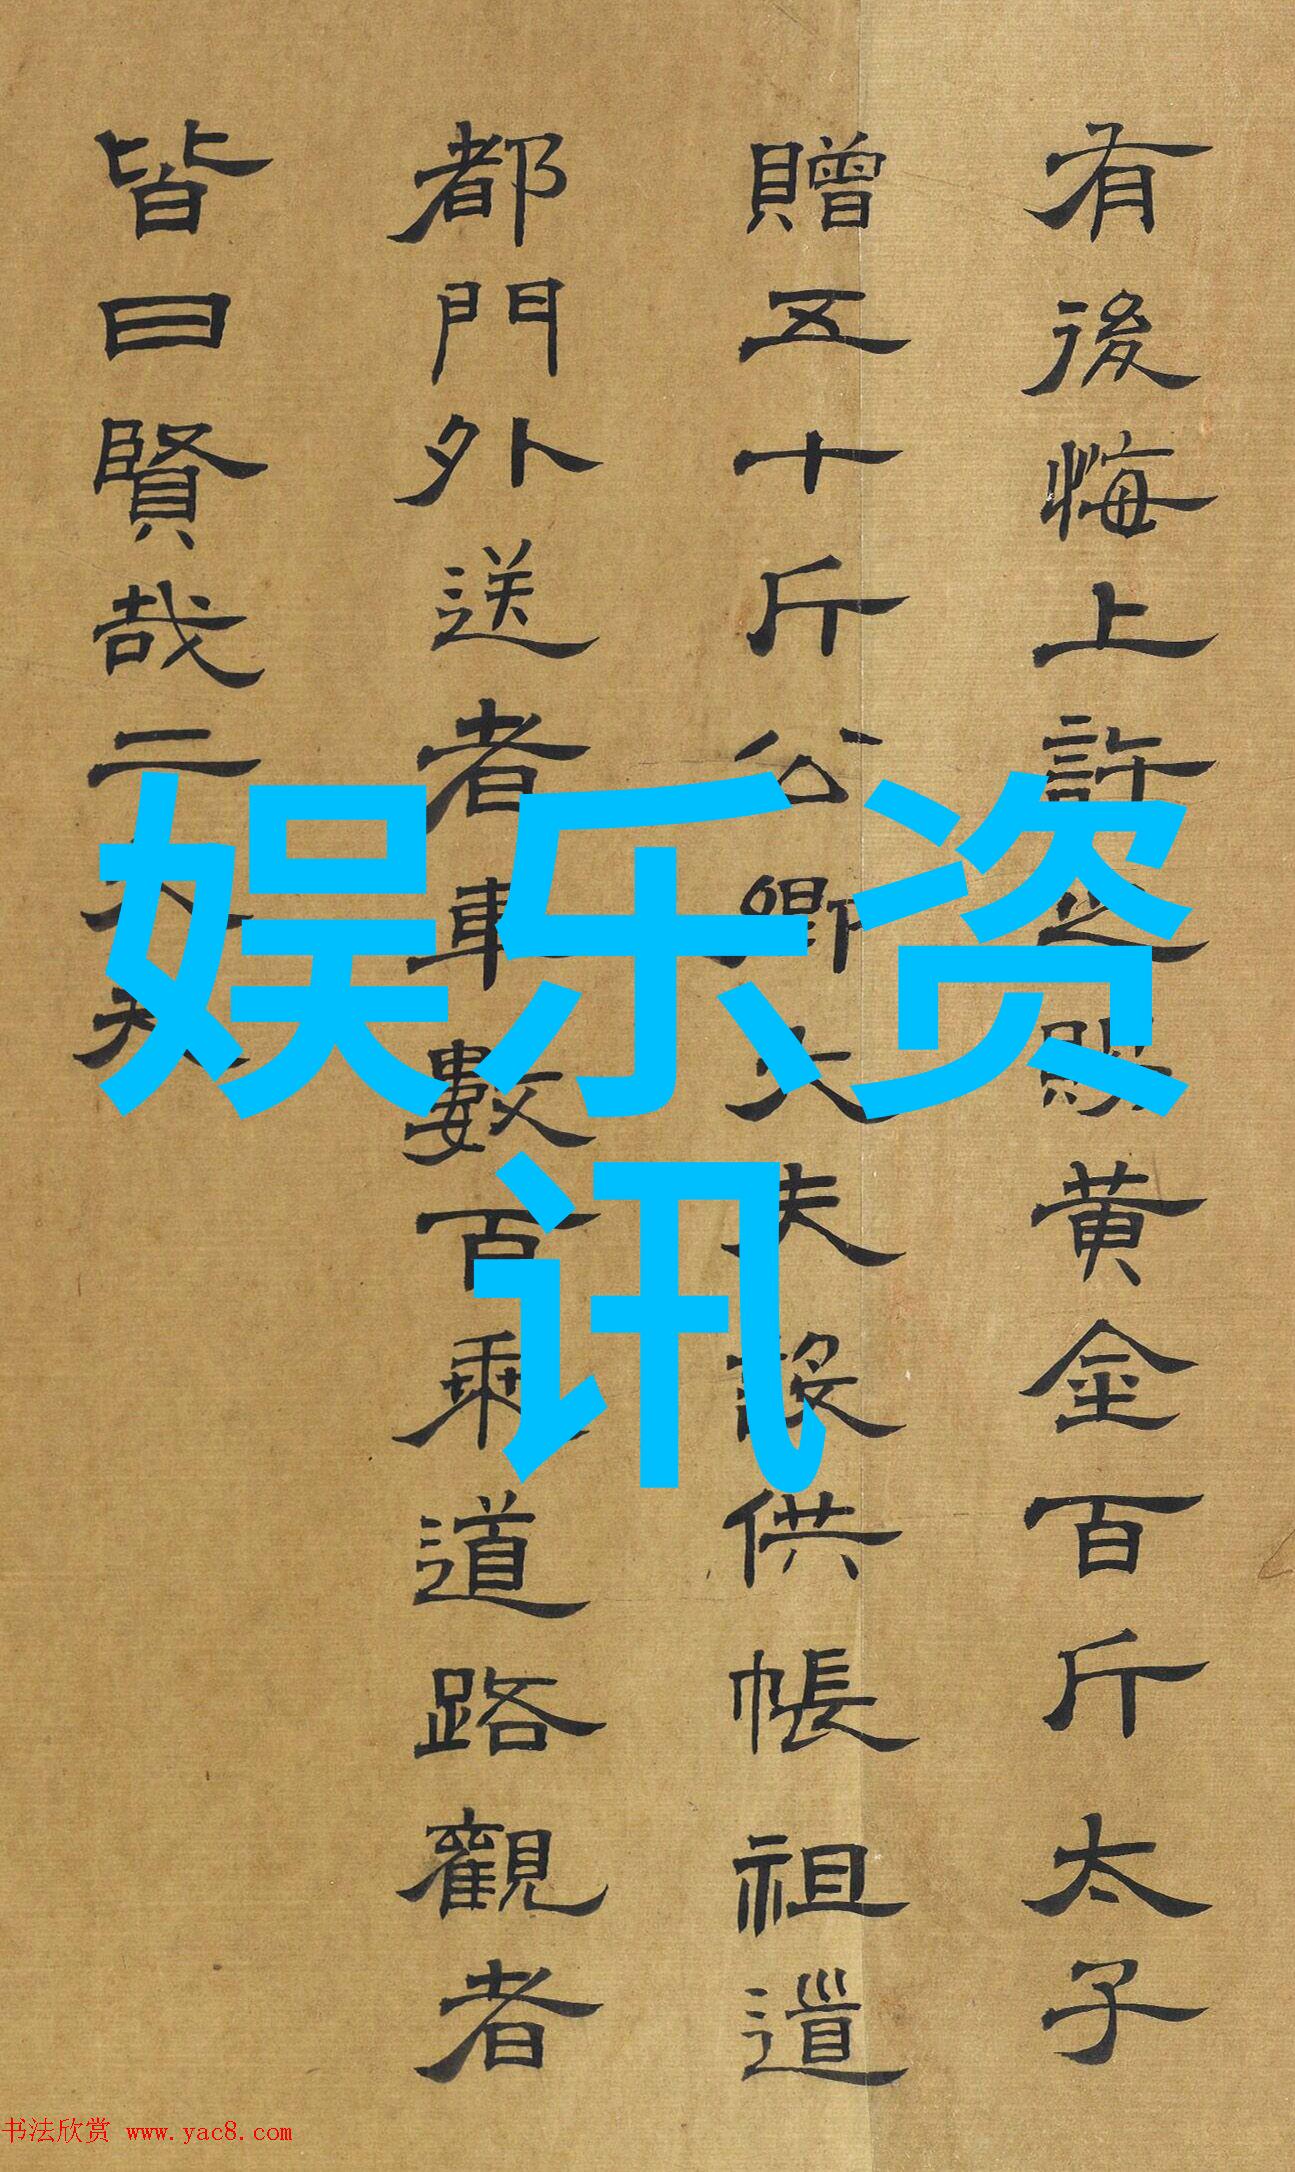 有後悔上許之賜黄金百斤太子
贈五十斤公卿大夫設供帳祖道
都門外送者車數百乘道路觀者
皆曰賢哉二大夫
娱乐资
讯
书法欣赏 www.yac8.com